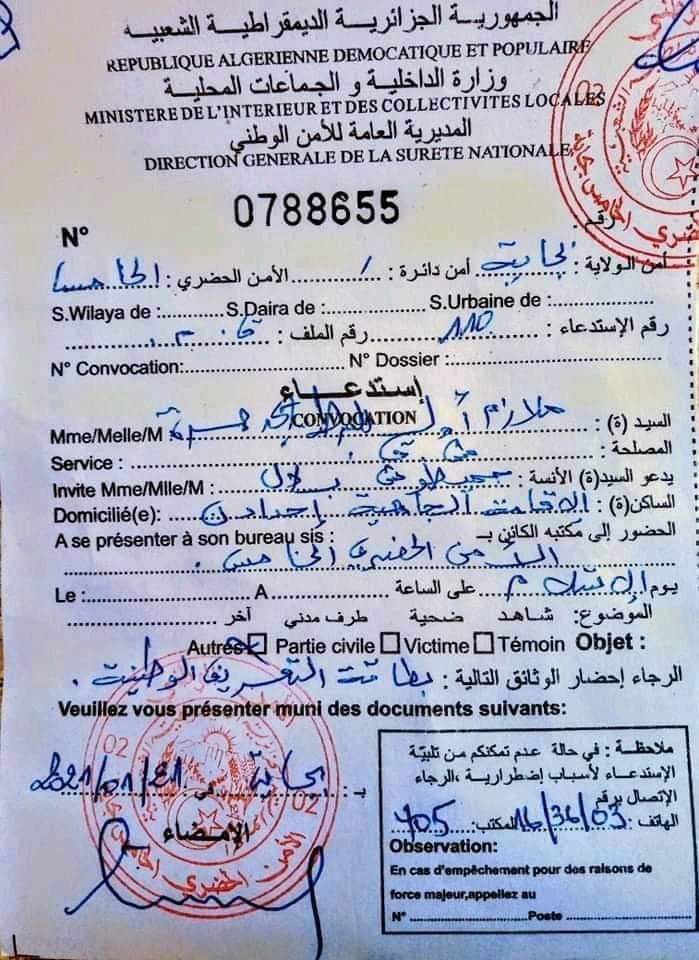 الجمهوريـة الجزائريـة الديمقراطيـة الشعبيـة
REPUBLIQUE ALGERIENNE DEMOCATIQUE ET POPULAIRE
وزارة الداخلية و الجماعات المحلية
MINISTERE DE L'INTERIEUR ET DES COLLECTIVITES LOCALES
المديرية العامة للأمن الوطني
DIRECTION GENERALE DE LA SURETE NATIONALE
0788655
N° رقم
أمن الولاية: بجاية أمن دائرة : / الأمن الحضري :
S.Wilaya de : S.Daira de : S.Urbaine de :
رقم الإستدعاء : 110 رقم الملف :
N° Convocation: N° Dossier :
إستدعـــاء
CONVOCATION
السيد (ة) : ملازم أول
Mme/Melle/M
المصلحة :
Service :
يدعو السيد(ة) الأنسة : بلال
Invite Mme/Mlle/M :
الساكن(ة) : الاقامة الجامعية
Domicilié(e):
الحضور إلى مكتبه الكائن بـ
A se présenter à son bureau sis :
الأمن الحضري الخامس .
يوم على الساعة
Le : A
الموضوع: شاهد ضحية طرف مدني آخر
Autres Partie civile Victime Témoin Objet :
الرجاء إحضار الوثائق التالية : بطاقة التعريف الوطنية .
Veuillez vous présenter muni des documents suivants:
بـ : بجاية في
الإمضاء
02
02
02
ملاحظة : في حالة عدم تمكنكم من تلبية
الإستدعاء لأسباب إضطرارية ،الرجاء
الإتصال برقم
الهاتف : 16/36/03 المكتب: 405
Observation:
En cas d'empêchement pour des raisons de
force majeur,appelez au
N° Poste